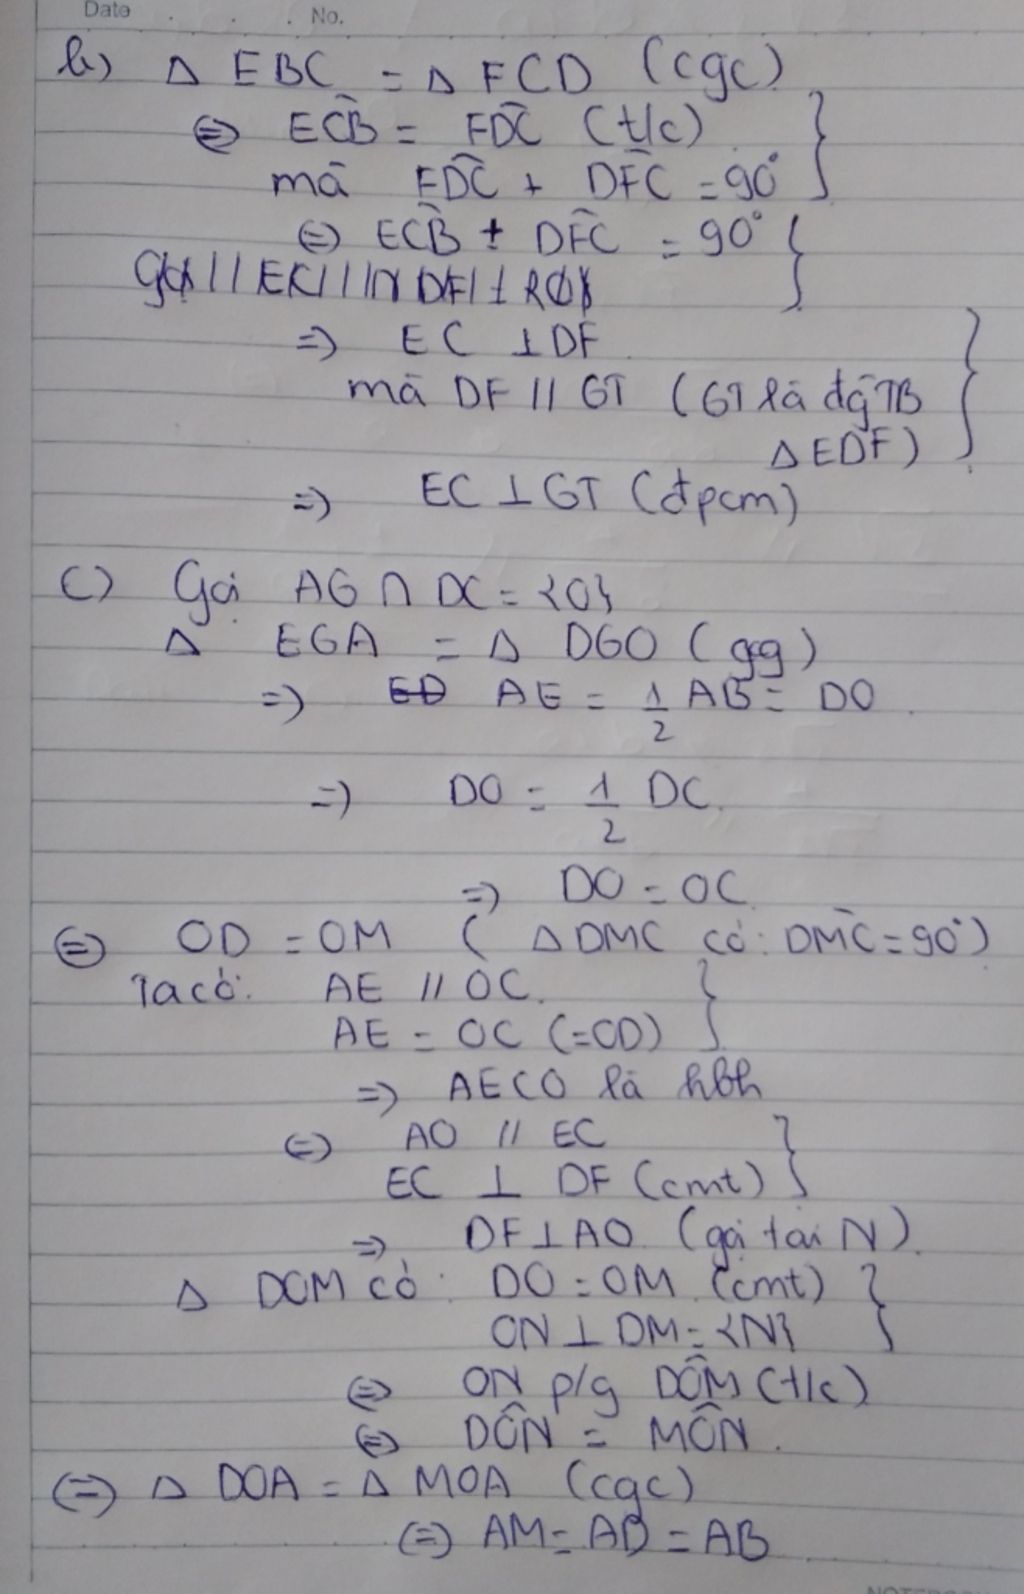 Date . . . No.
b) Δ EBC = Δ FCD (cgc)
⇔ EĈB = FD̂C (t/c)
mà FD̂C + DF̂C = 90°
⇔ EĈB + DF̂C = 90°
⇒ EC ⊥ DF
mà DF // GT (GT là đg TB
Δ EDF)
⇒ EC ⊥ GT (đpcm)
c) Gọi AG ∩ DC = {O}
Δ EGA = Δ DGO (gcg)
⇒ ED AE = 1/2 AB = DO.
⇒ DO = 1/2 DC.
⇒ DO = OC
⇔ OD = OM ( Δ DMC có: DM̂C = 90°)
Ta có: AE // OC.
AE = OC (=OD)
⇒ AECO là hbh
⇔ AO // EC
EC ⊥ DF (cmt)
⇒ DF ⊥ AO (gọi tại N).
Δ DOM có: DO = OM (cmt)
ON ⊥ DM = {N}
⇔ ON p/g DÔM (t/c)
⇔ DÔN = MÔN.
(⇒) Δ DOA = Δ MOA (cgc)
(⇒) AM = AD = AB